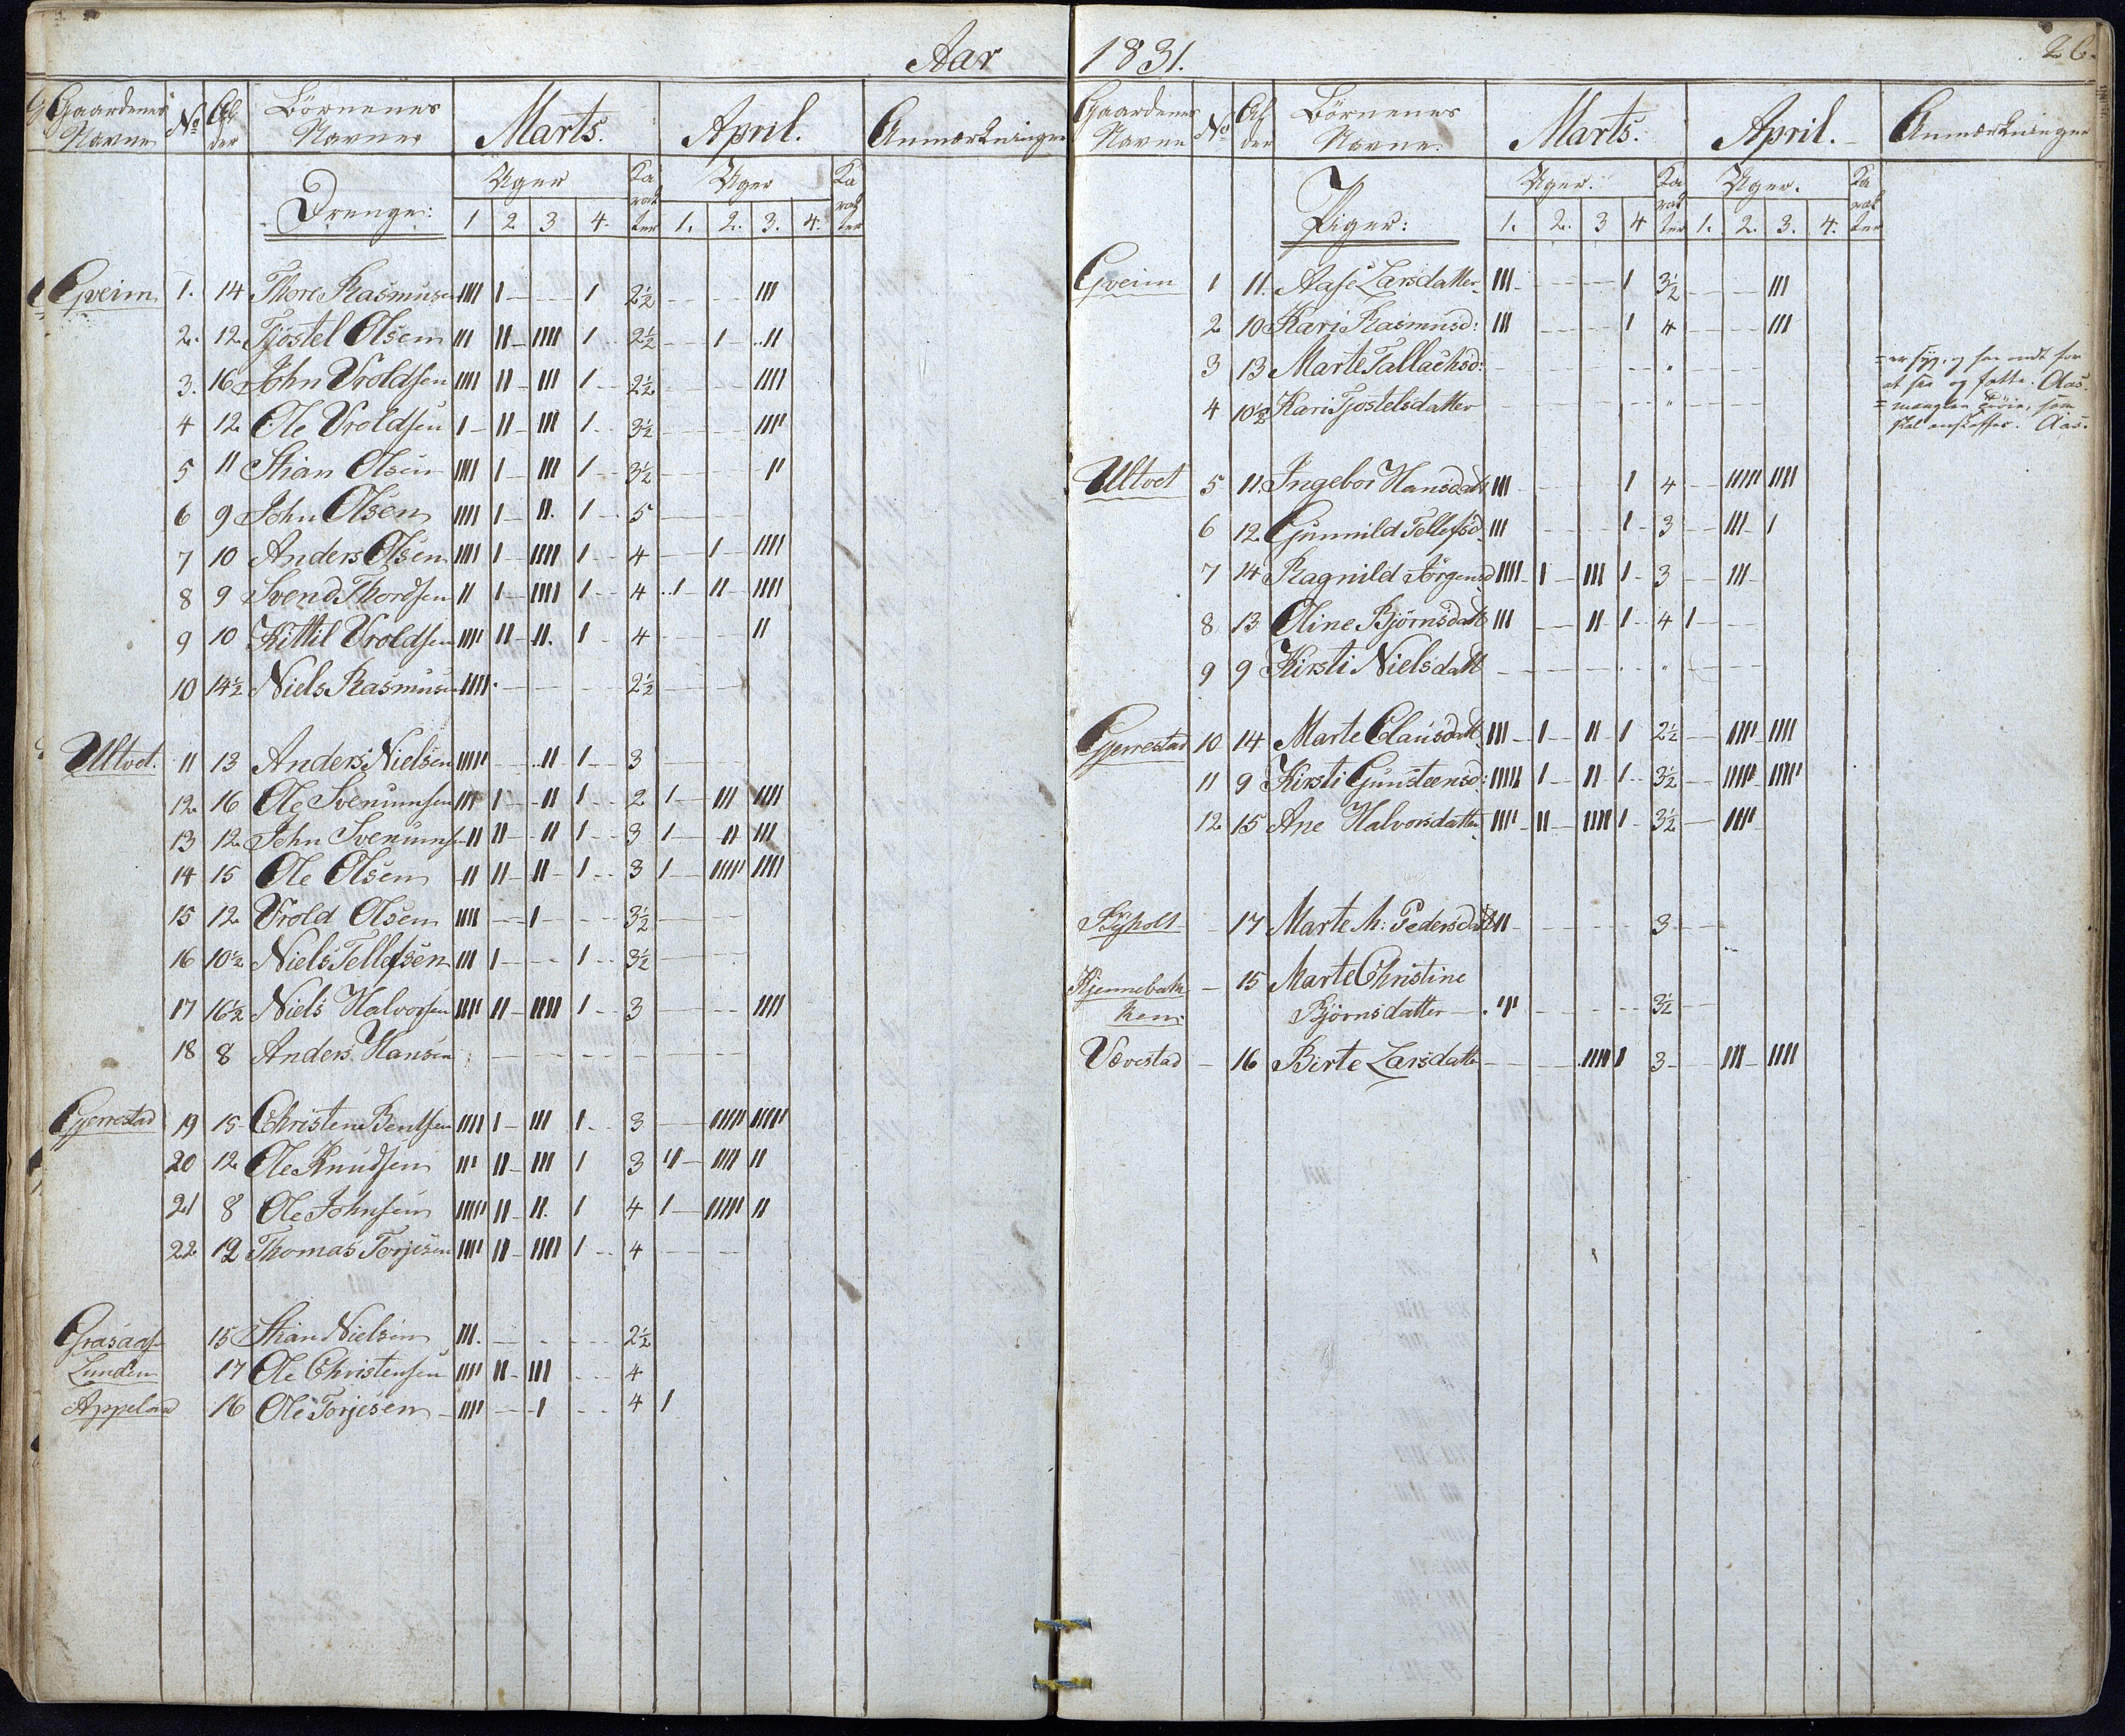 Aar 1831. 26.
Gaardenes Navne No Alder Börnenes Navne Marts. April. Anmærkninger
Drenge: Uger Karakter Uger Karakter
1 2 3 4. 1. 2. 3. 4.
Gveim 1. 14 Thore Rasmusen IIII I I 2½ III
2. 12. Tjöstel Olsen III II IIII I 2½ I II
3. 16 John Vroldsen IIII II III I 2½ IIII
4 12 Ole Vroldsen I II III I 3½ IIII
5 11 Stian Olsen IIII I III I 3½ II
6 9 John Olsen IIII I II. I 5
7 10 Anders Olsen IIII I IIII I 4 I IIII
8 9 Svend Thordsen II I IIII I 4 I II IIII
9 10 Kittil Vroldsen IIII II II. I 4 II
10 14½ Niels Rasmusen IIII. 2½
Ultvet. 11 13 Anders Nielsen IIIII II I 3
12. 16 Ole Svenumsen III I II I 2 I III IIII
13 12. John Svenumsen II II II I 3 I II III
14 15 Ole Olsen II II II I 3 I IIIII IIII
15 12. Vrold Olsen IIII I 3½
16 10½ Niels Tellefsen III I I 3½
17 16½ Niels Halvorsen IIII II IIII I 3 IIII
18 8 Anders Hansen
Gjerrestad 19 15 Christen Bentsen IIII I III I 3 IIIII IIIII
20 12 Ole Knudsen III II III I 3 II IIII II
21 8 Ole Johnsen IIIII II II. I 4 I IIIII II
22 12 Thomas Torjesen IIII II IIII I 4
Grasaas 15 Stian Nielsen III. 2½
Lunden 17 Ole Christensen IIII II III 4
Appelnd 16 Ole Torjesen IIII I 4 I
Gaardenes Navne No Alder Börnenes Navne. Marts. April. Anmærkninger
Piger: Uger. Karakter Uger. Karakter
1. 2. 3 4 1. 2. 3. 4.
Gveim 1 11. Aase Larsdatter III I 3½ III
2 10 Kari Rasmusd: III I 4 III
3 13 Marte Tallachsd: = er syg, og har ondt for
at see og fatte. Aas.
4 10½ Kari Tjostelsdatter = mangler som
skal anskaffes. Aas.
Ultvet 5 11. Ingebor Hansdatt III I 4 IIIII IIII
6 12. Gunnild Tellefsd. III I 3 III I
7 14 Ragnild Jörgensd IIII I III I 3 III
8 13 Oline Björnsdatt III II I 4 I
9 9 Kirsti Nielsdatt
Gjerrestad 10 14 Marte Clausdatt III I II I 2½ IIII IIII
11 9 Kirsti Gunsteensd: IIIII I II I 3½ IIIII IIIII
12 15 Ane Halvorsdatter IIII II IIII I 3½ IIII
17 Marte M: Pedersdatt II 3
Kjennebak 15 Marte Christine
ken Björnsdatter II 3½
Vævestad 16 Birte Larsdatter IIII I 3 III IIII